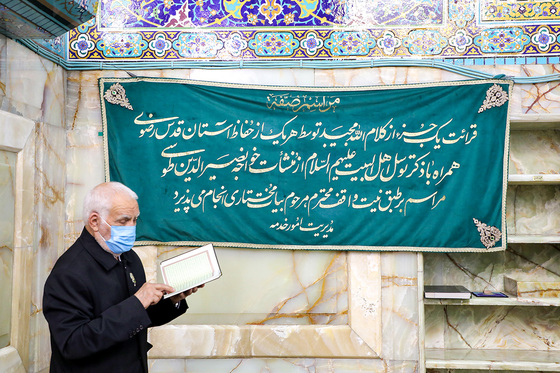 مراسم صفّه
قرائت یک جزء از کلام الله مجید توسط هر یک از حفاظ آستان قدس رضوی
همراه با ذکر توسل اهل البیت علیهم السلام از منشآت خواجه نصیرالدین طوسی
مراسم بر طبق نیت واقف محترم مرحوم بیامختاری انجام می پذیرد
مدیریت امور خدمه